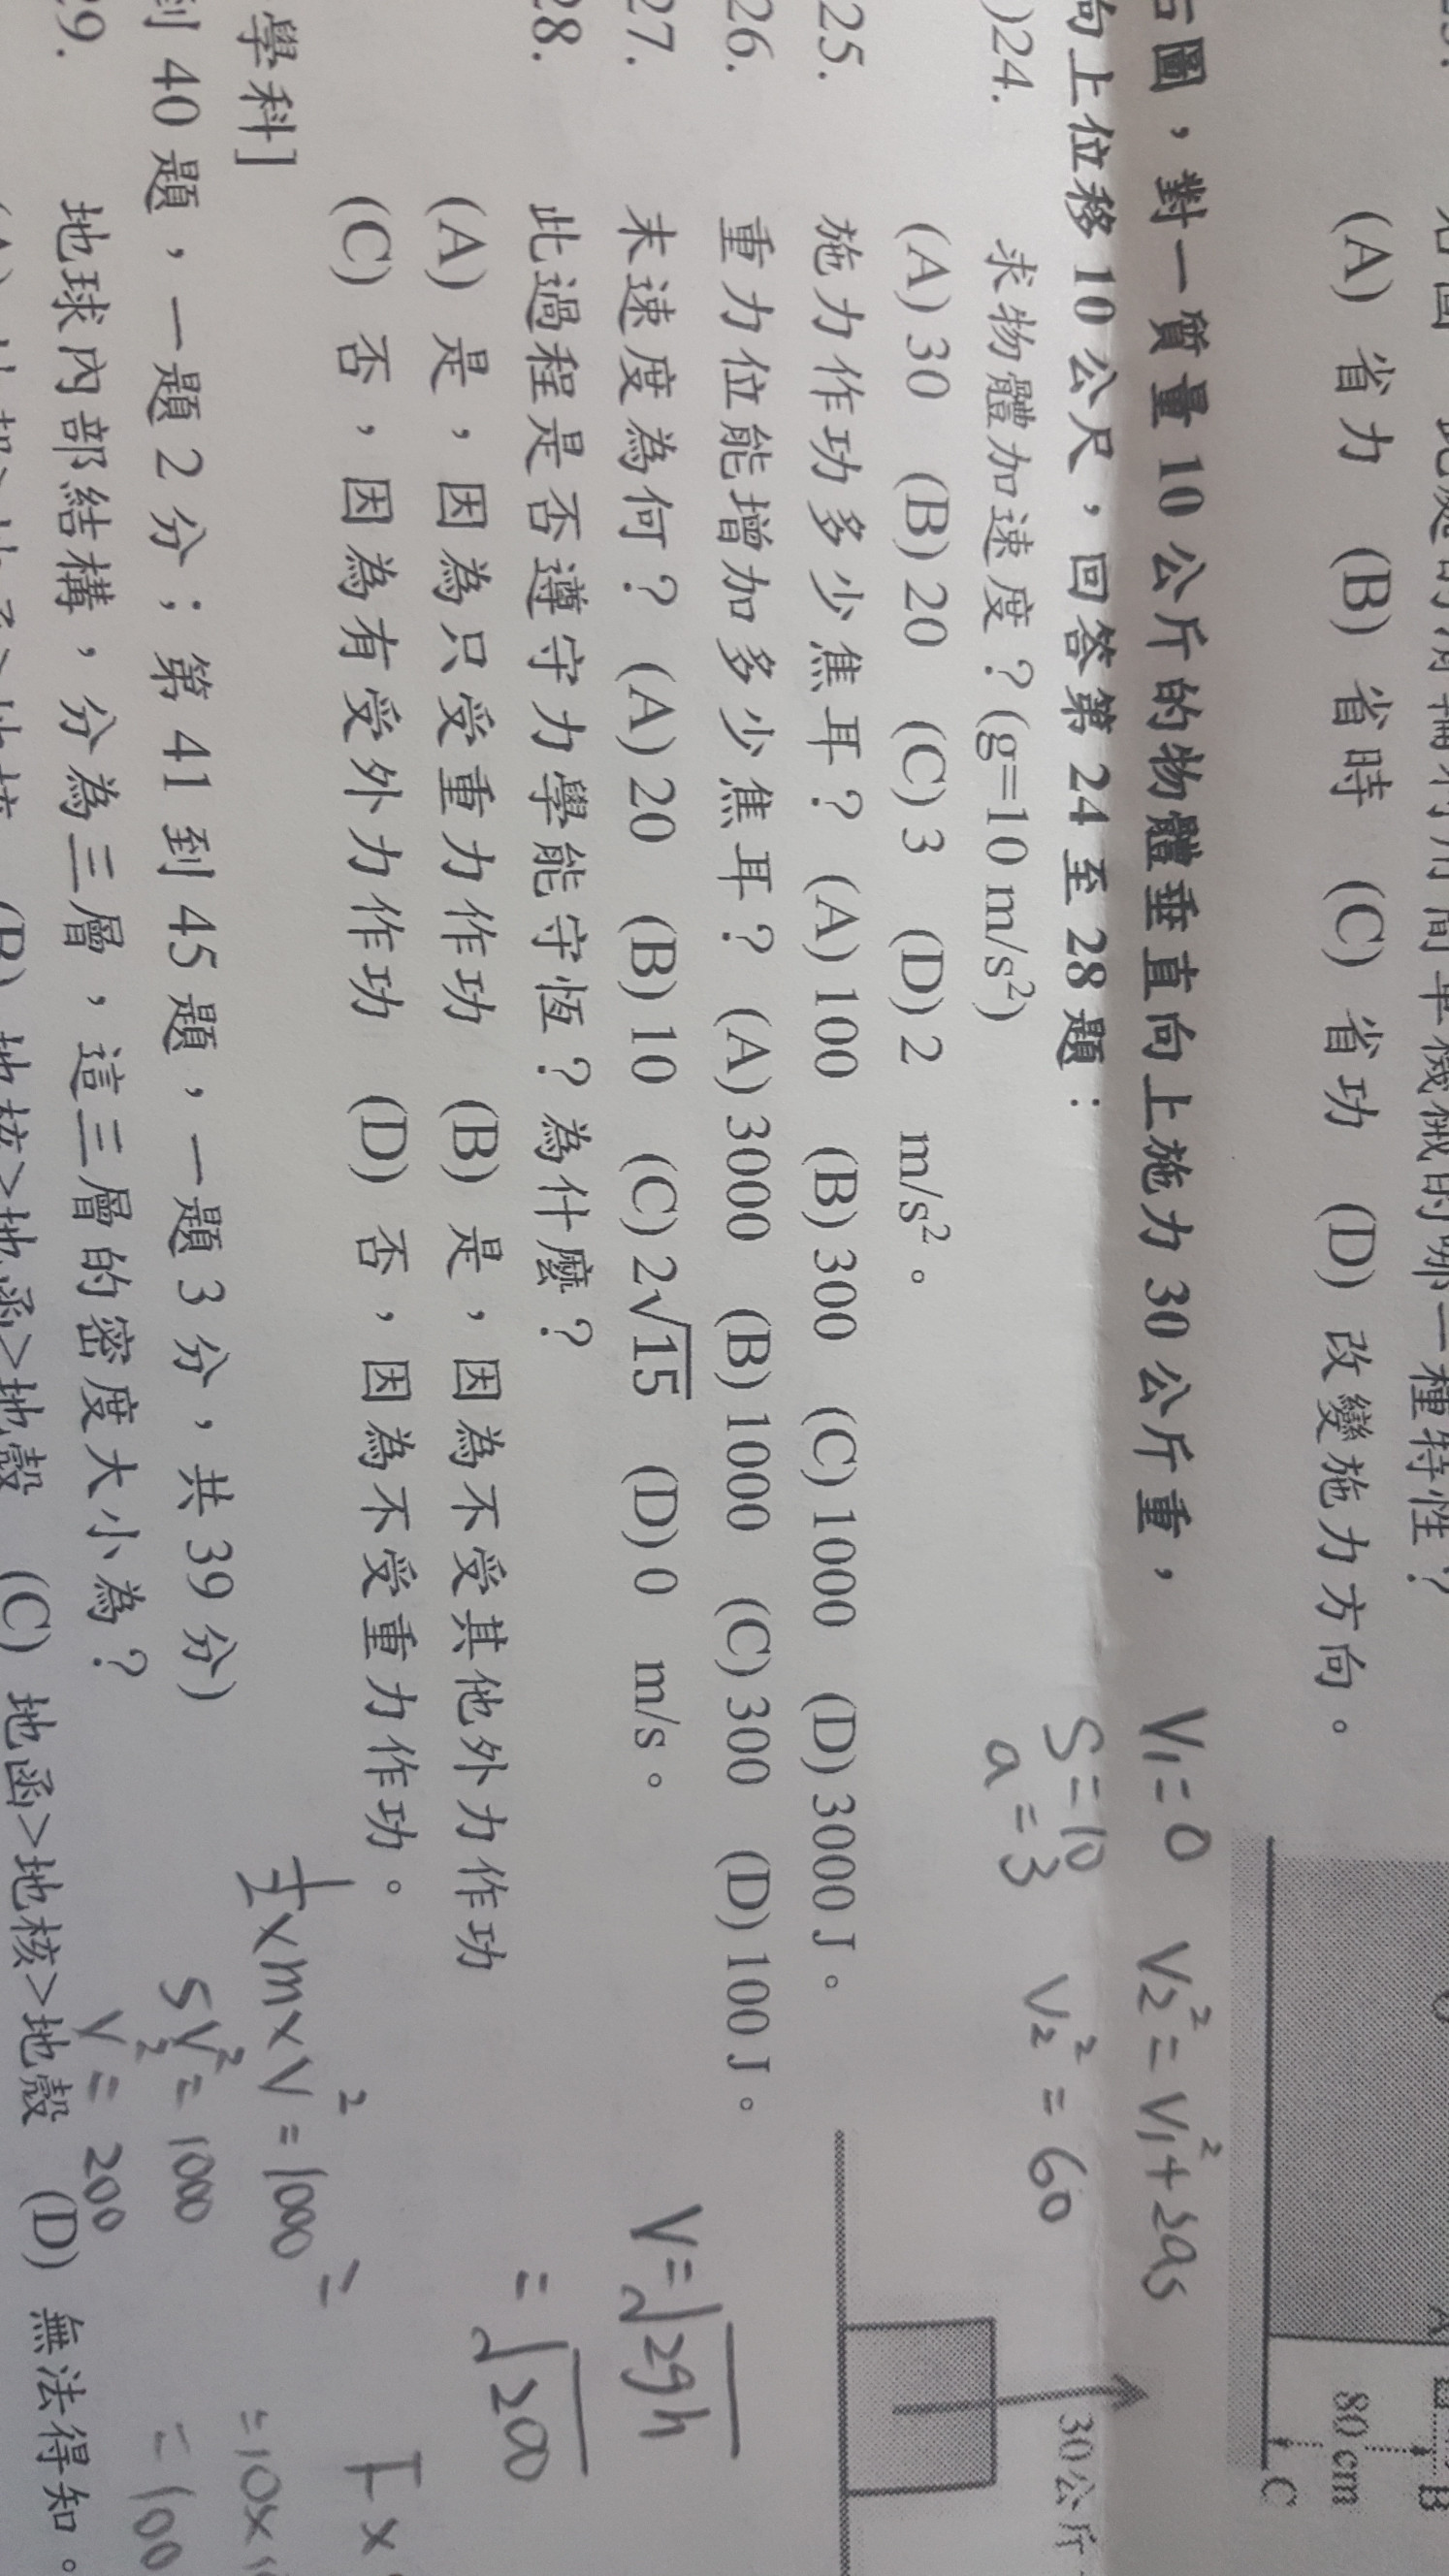 (A) 省力 (B) 省時 (C) 省功 (D) 改變施力方向。
80 cm
B
C
右圖，對一質量 10 公斤的物體垂直向上施力 30 公斤重，
向上位移 10 公尺，回答第 24 至 28 題：
)24. 求物體加速度？(g=10 m/s²)
(A) 30 (B) 20 (C) 3 (D) 2 m/s²。
25. 施力作功多少焦耳？ (A) 100 (B) 300 (C) 1000 (D) 3000 J。
26. 重力位能增加多少焦耳？ (A) 3000 (B) 1000 (C) 300 (D) 100 J。
27. 末速度為何？ (A) 20 (B) 10 (C) 2√15 (D) 0 m/s。
28. 此過程是否遵守力學能守恆？為什麼？
(A) 是，因為只受重力作功 (B) 是，因為不受其他外力作功
(C) 否，因為有受外力作功 (D) 否，因為不受重力作功。
30 公斤
V₁=0 V₂²=V₁²+2as
S=10
a=3 V₂²=60
V=√2gh
=√200
½×m×V²=1000
5V²=1000
V²=200
=10×
=100
學科]
到 40 題，一題 2 分；第 41 到 45 題，一題 3 分，共 39 分)
29. 地球內部結構，分為三層，這三層的密度大小為？
(B) 地核>地函>地殼 (C) 地函>地核>地殼 (D) 無法得知。